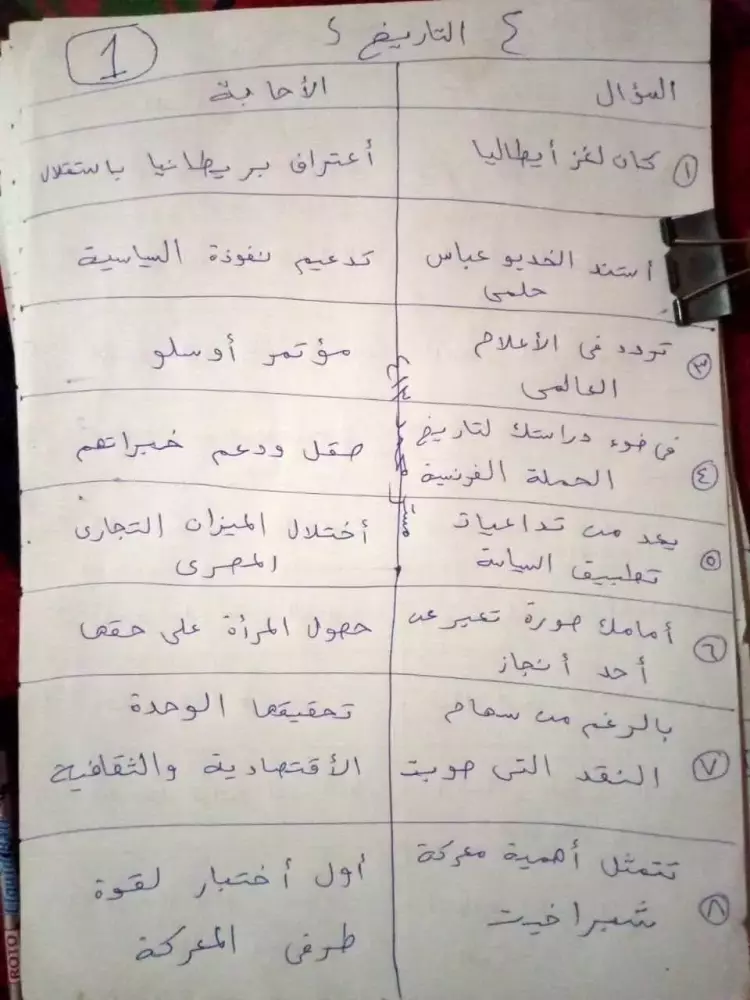 { التاريخ }
1
السؤال
الأجابة
١ كان لغز أيطاليا
أعتراف بريطانيا باستقلال
أستند الخديو عباس
حلمى
تدعيم نفوذة السياسية
٣ تردد فى الأعلام
العالمى
مؤتمر أوسلو
٤ فى ضوء دراستك لتاريخ
الحملة الفرنسية
صقل ودعم خبراتهم
٥ يعد من تداعيات
تطبيق السياسة
أختلال الميزان التجارى
المصرى
٦ أمامك صورة تعبر عن
أحد أنجاز
حصول المرأة على حقها
٧ بالرغم من سهام
النقد التى صوبت
تحقيقها الوحدة
الأقتصادية والثقافية
٨ تتمثل أهمية معركة
شبراخيت
أول أختبار لقوة
طرفى المعركة